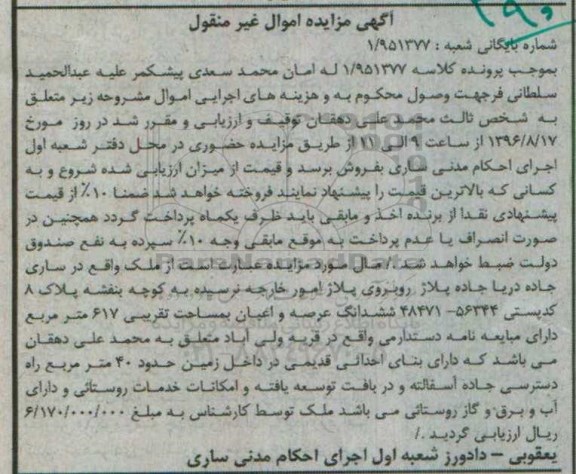 ۲۹و
آگهی مزایده اموال غیر منقول
شماره بایگانی شعبه : ۱/۹۵۱۳۷۷
بموجب پرونده کلاسه ۱/۹۵۱۳۷۷ له امان محمد سعدی پیشکمر علیه عبدالحمید
سلطانی فرجهت وصول محکوم به و هزینه های اجرایی اموال مشروحه زیر متعلق
به شخص ثالث محمد علی دهقان توقیف و ارزیابی و مقرر شد در روز مورخ
۱۳۹۶/۸/۱۷ از ساعت ۹ الی ۱۱ از طریق مزایده حضوری در محل دفتر شعبه اول
اجرای احکام مدنی ساری بفروش برسد و قیمت از میزان ارزیابی شده شروع و به
کسانی که بالاترین قیمت را پیشنهاد نمایند فروخته خواهد شد ضمنا ۱۰٪ از قیمت
پیشنهادی نقدا از برنده اخذ و مابقی باید ظرف یکماه پرداخت گردد همچنین در
صورت انصراف یا عدم پرداخت به موقع مابقی وجه ۱۰٪ سپرده به نفع صندوق
دولت ضبط خواهد شد ./ مال مورد مزایده عبارت است از ملک واقع در ساری
جاده دریا جاده پلاژ روبروی پلاژ امور خارجه نرسیده به کوچه بنفشه پلاک ۸
کدپستی ۵۶۳۴۴-۴۸۴۷۱ ششدانگ عرصه و اعیان بمساحت تقریبی ۶۱۷ متر مربع
دارای مبایعه نامه دستدارمی واقع در قریه ولی آباد متعلق به محمد علی دهقان
می باشد که دارای بنای احداثی قدیمی در داخل زمین حدود ۴۰ متر مربع راه
دسترسی جاده آسفالته و در بافت توسعه یافته و امکانات خدمات روستائی و دارای
آب و برق و گاز روستائی می باشد ملک توسط کارشناس به مبلغ ۶/۱۷۰/۰۰۰/۰۰۰
ریال ارزیابی گردید ./
یعقوبی – دادورز شعبه اول اجرای احکام مدنی ساری